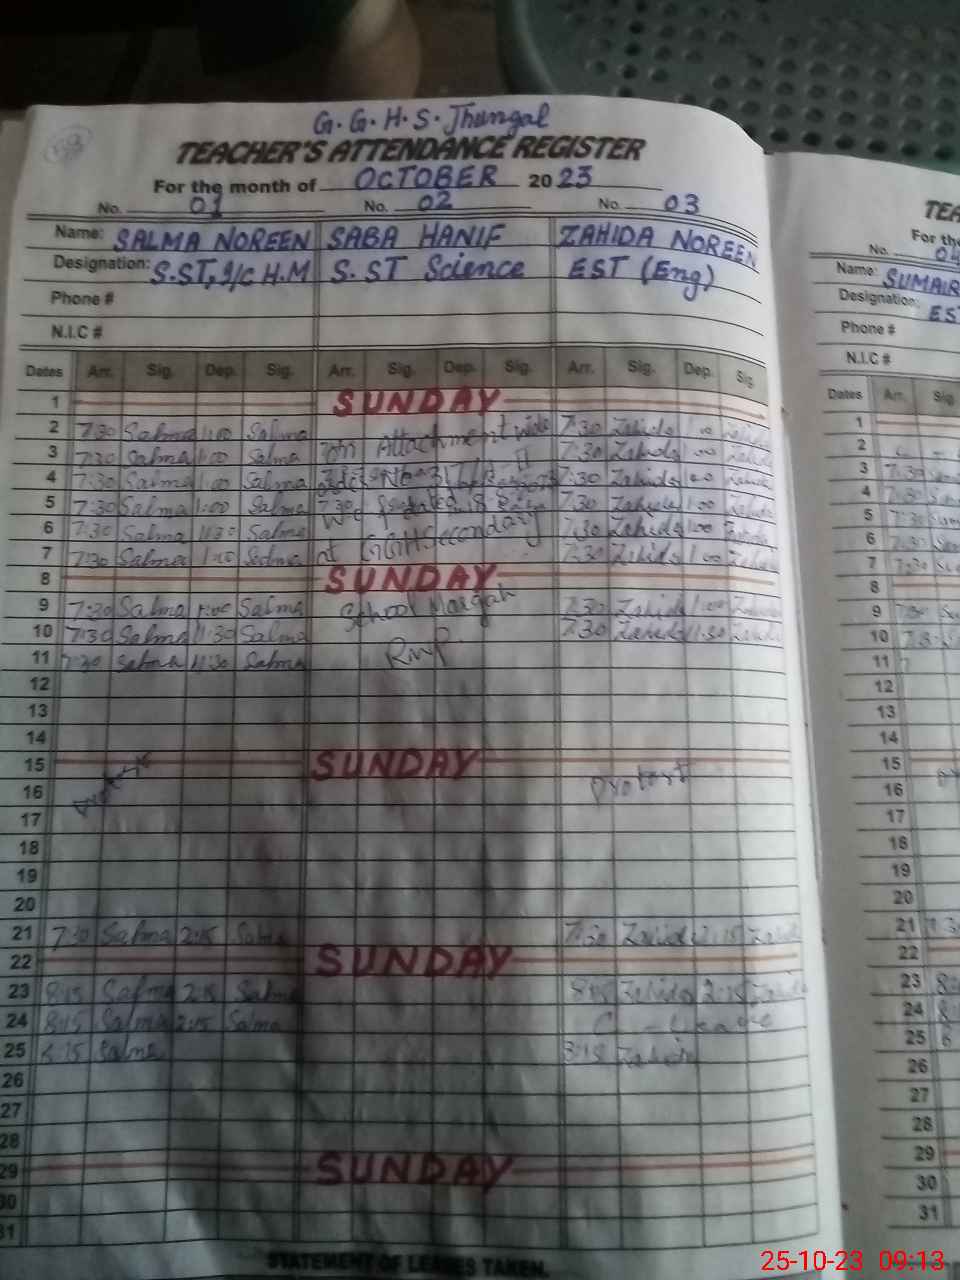 G.G.H.S. Jhungal
TEACHER'S ATTENDANCE REGISTER
For the month of OCTOBER 2023
No. 01 No. 02 No. 03
Name: SALMA NOREEN SABA HANIF ZAHIDA NOREEN
Designation: S.ST, I/C H.M S.ST Science EST (Eng)
Phone #
N.I.C #
Dates Arr. Sig. Dep. Sig. Arr. Sig. Dep. Sig. Arr. Sig. Dep. Sig
1 SUNDAY
2 7:30 Salma 1:00 Salma on Attachment vide 7:30 Zahida 1:00 Zahida
3 7:30 Salma 1:00 Salma 7:30 Zahida 1:00 Zahida
4 7:30 Salma 1:00 Salma 7:30 Zahida 1:00 Zahida
5 7:30 Salma 1:00 Salma 7:30 Zahida 1:00 Zahida
6 7:30 Salma 11:30 Salma at GGHSecondary 7:30 Zahida 1:00 Zahida
7 7:30 Salma 1:00 Salma 7:30 Zahida 1:00 Zahida
8 SUNDAY
9 7:30 Salma 1:00 Salma School Margah 7:30 Zahida 1:00 Zahida
10 7:30 Salma 11:30 Salma Rwp. 7:30 Zahida 11:30 Zahida
11 7:30 Salma 11:30 Salma
12
13
14
15 SUNDAY
16 Protest Protest
17
18
19
20
21 7:30 Salma 2:15 Salma 7:30 Zahida 2:15 Zahida
22 SUNDAY
23 8:15 Salma 2:15 Salma 8:15 Zahida 2:15 Zahida
24 8:15 Salma 2:15 Salma C-Leave
25 8:15 Salma 8:15 Zahida
26
27
28
29 SUNDAY
30
31
STATEMENT OF LEAVES TAKEN.
TEA
For th
No. 04
Name: SUMAIR
Designation: EST
Phone #
N.I.C #
Dates Arr. Sig
1
2
3 7:30
4 7:30
5 7:30
6 7:30
7 7:30
8
9 7:30
10
11
12
13
14
15
16
17
18
19
20
21
22
23
24
25
26
27
28
29
30
31
25-10-23 09:13